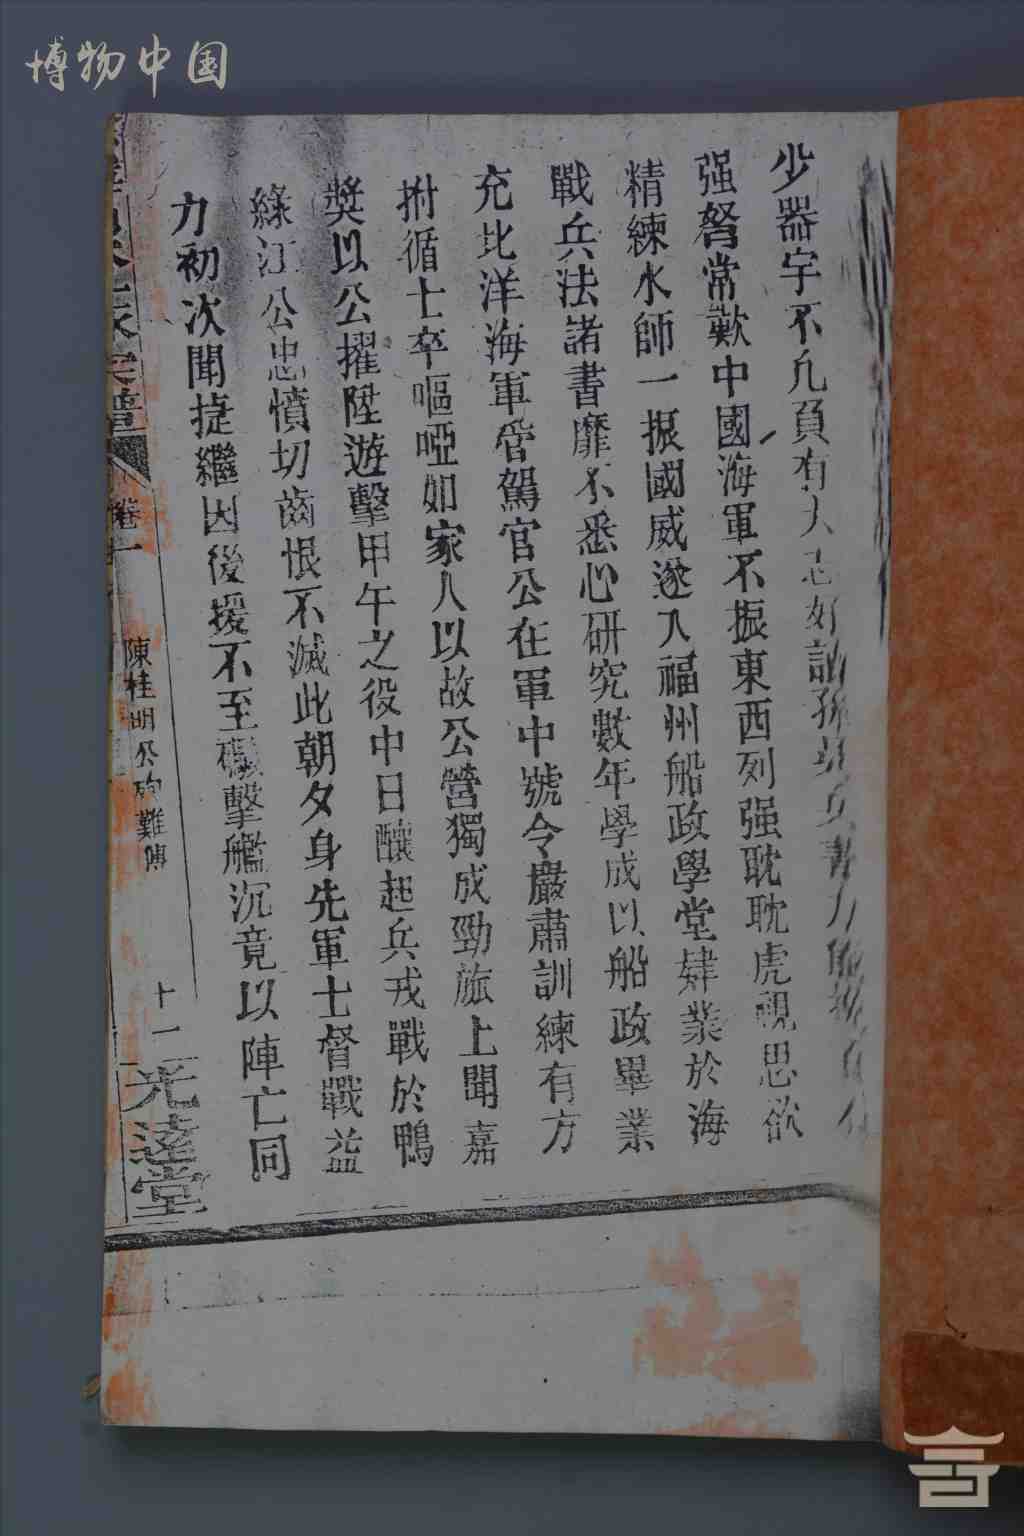 博物中国
少器宇不凡負有大志好訥孫吳兵書力
强弩常歎中國海軍不振東西列强耽耽虎視思欲
精練水師一振國威遂入福州船政學堂肄業於海
戰兵法諸書靡不悉心研究數年學成以船政畢業
充北洋海軍管駕官公在軍中號令嚴肅訓練有方
拊循士卒嘔啞如家人以故公營獨成勁旅上聞嘉
獎以公擢陞遊擊甲午之役中日釀起兵戎戰於鴨
綠江公忠憤切齒恨不滅此朝夕身先軍士督戰益
力初次聞捷繼因後援不至礮擊艦沉竟以陣亡同
宗譜
卷一
陳桂明公殉難傳
十一
光遠堂